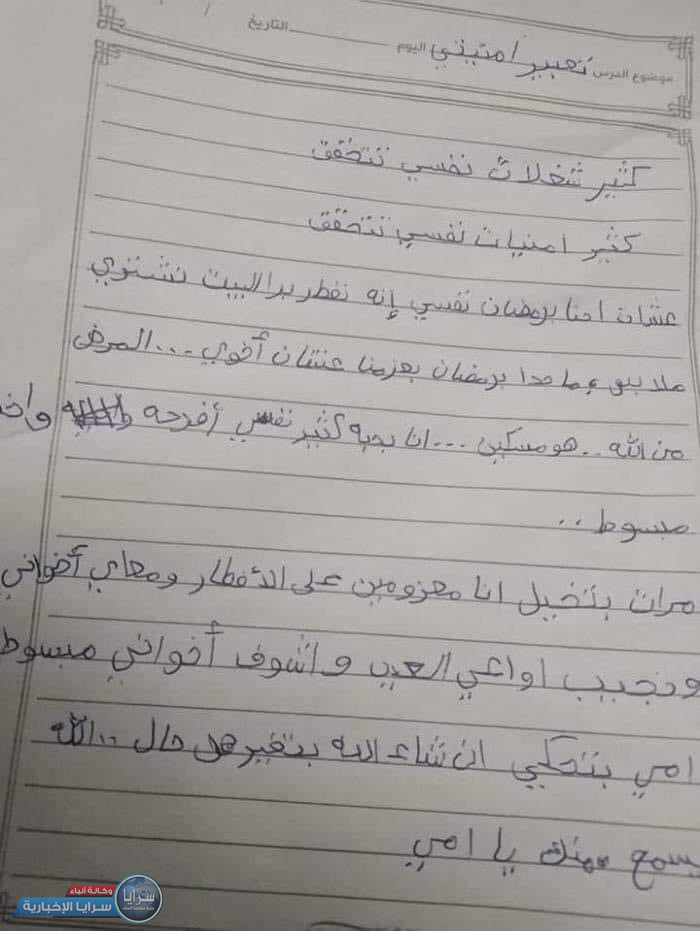 التاريخ
موضوع الدرس تعبير امنيتي اليوم
كثير شغلات نفسي تتحقق
كثير امنيات نفسي تتحقق
عشان احنا برمضان نفسي إنه نفطر برا البيت نشتري
ملابس وما حدا برمضان بعزمنا عشان أخوي ... المرض
من الله .. هو مسكين ... انا بحبه كثير نفسي أفرحه واخ
مبسوط ..
مرات بتخيل انا معزومين على الأفطار ومعاي أخواني
ونجيب اواعي العيد واشوف أخواني مبسوط
امي بتحكي ان شاء الله بتغير هل حال .. الله
يسمع منك يا امي
وكالة أنباء
سرايا الإخبارية
سرايا